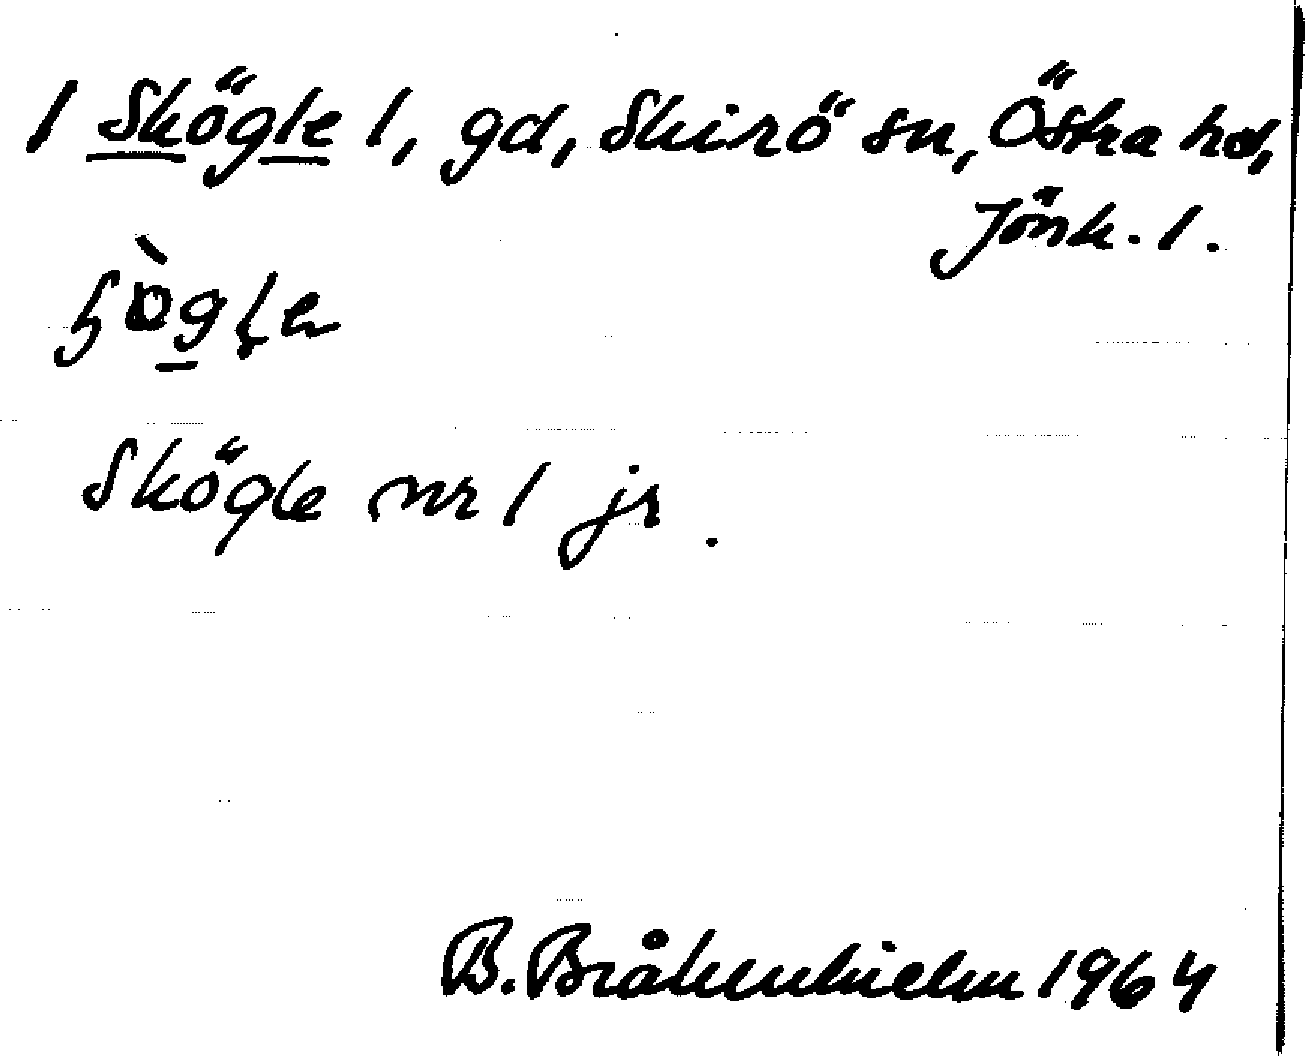 1 Skögle 1, gd, Skirö sn, Östra hd,
Jönk. l.
Skögle nr 1 jr.
B. Bråkenhielm 1964